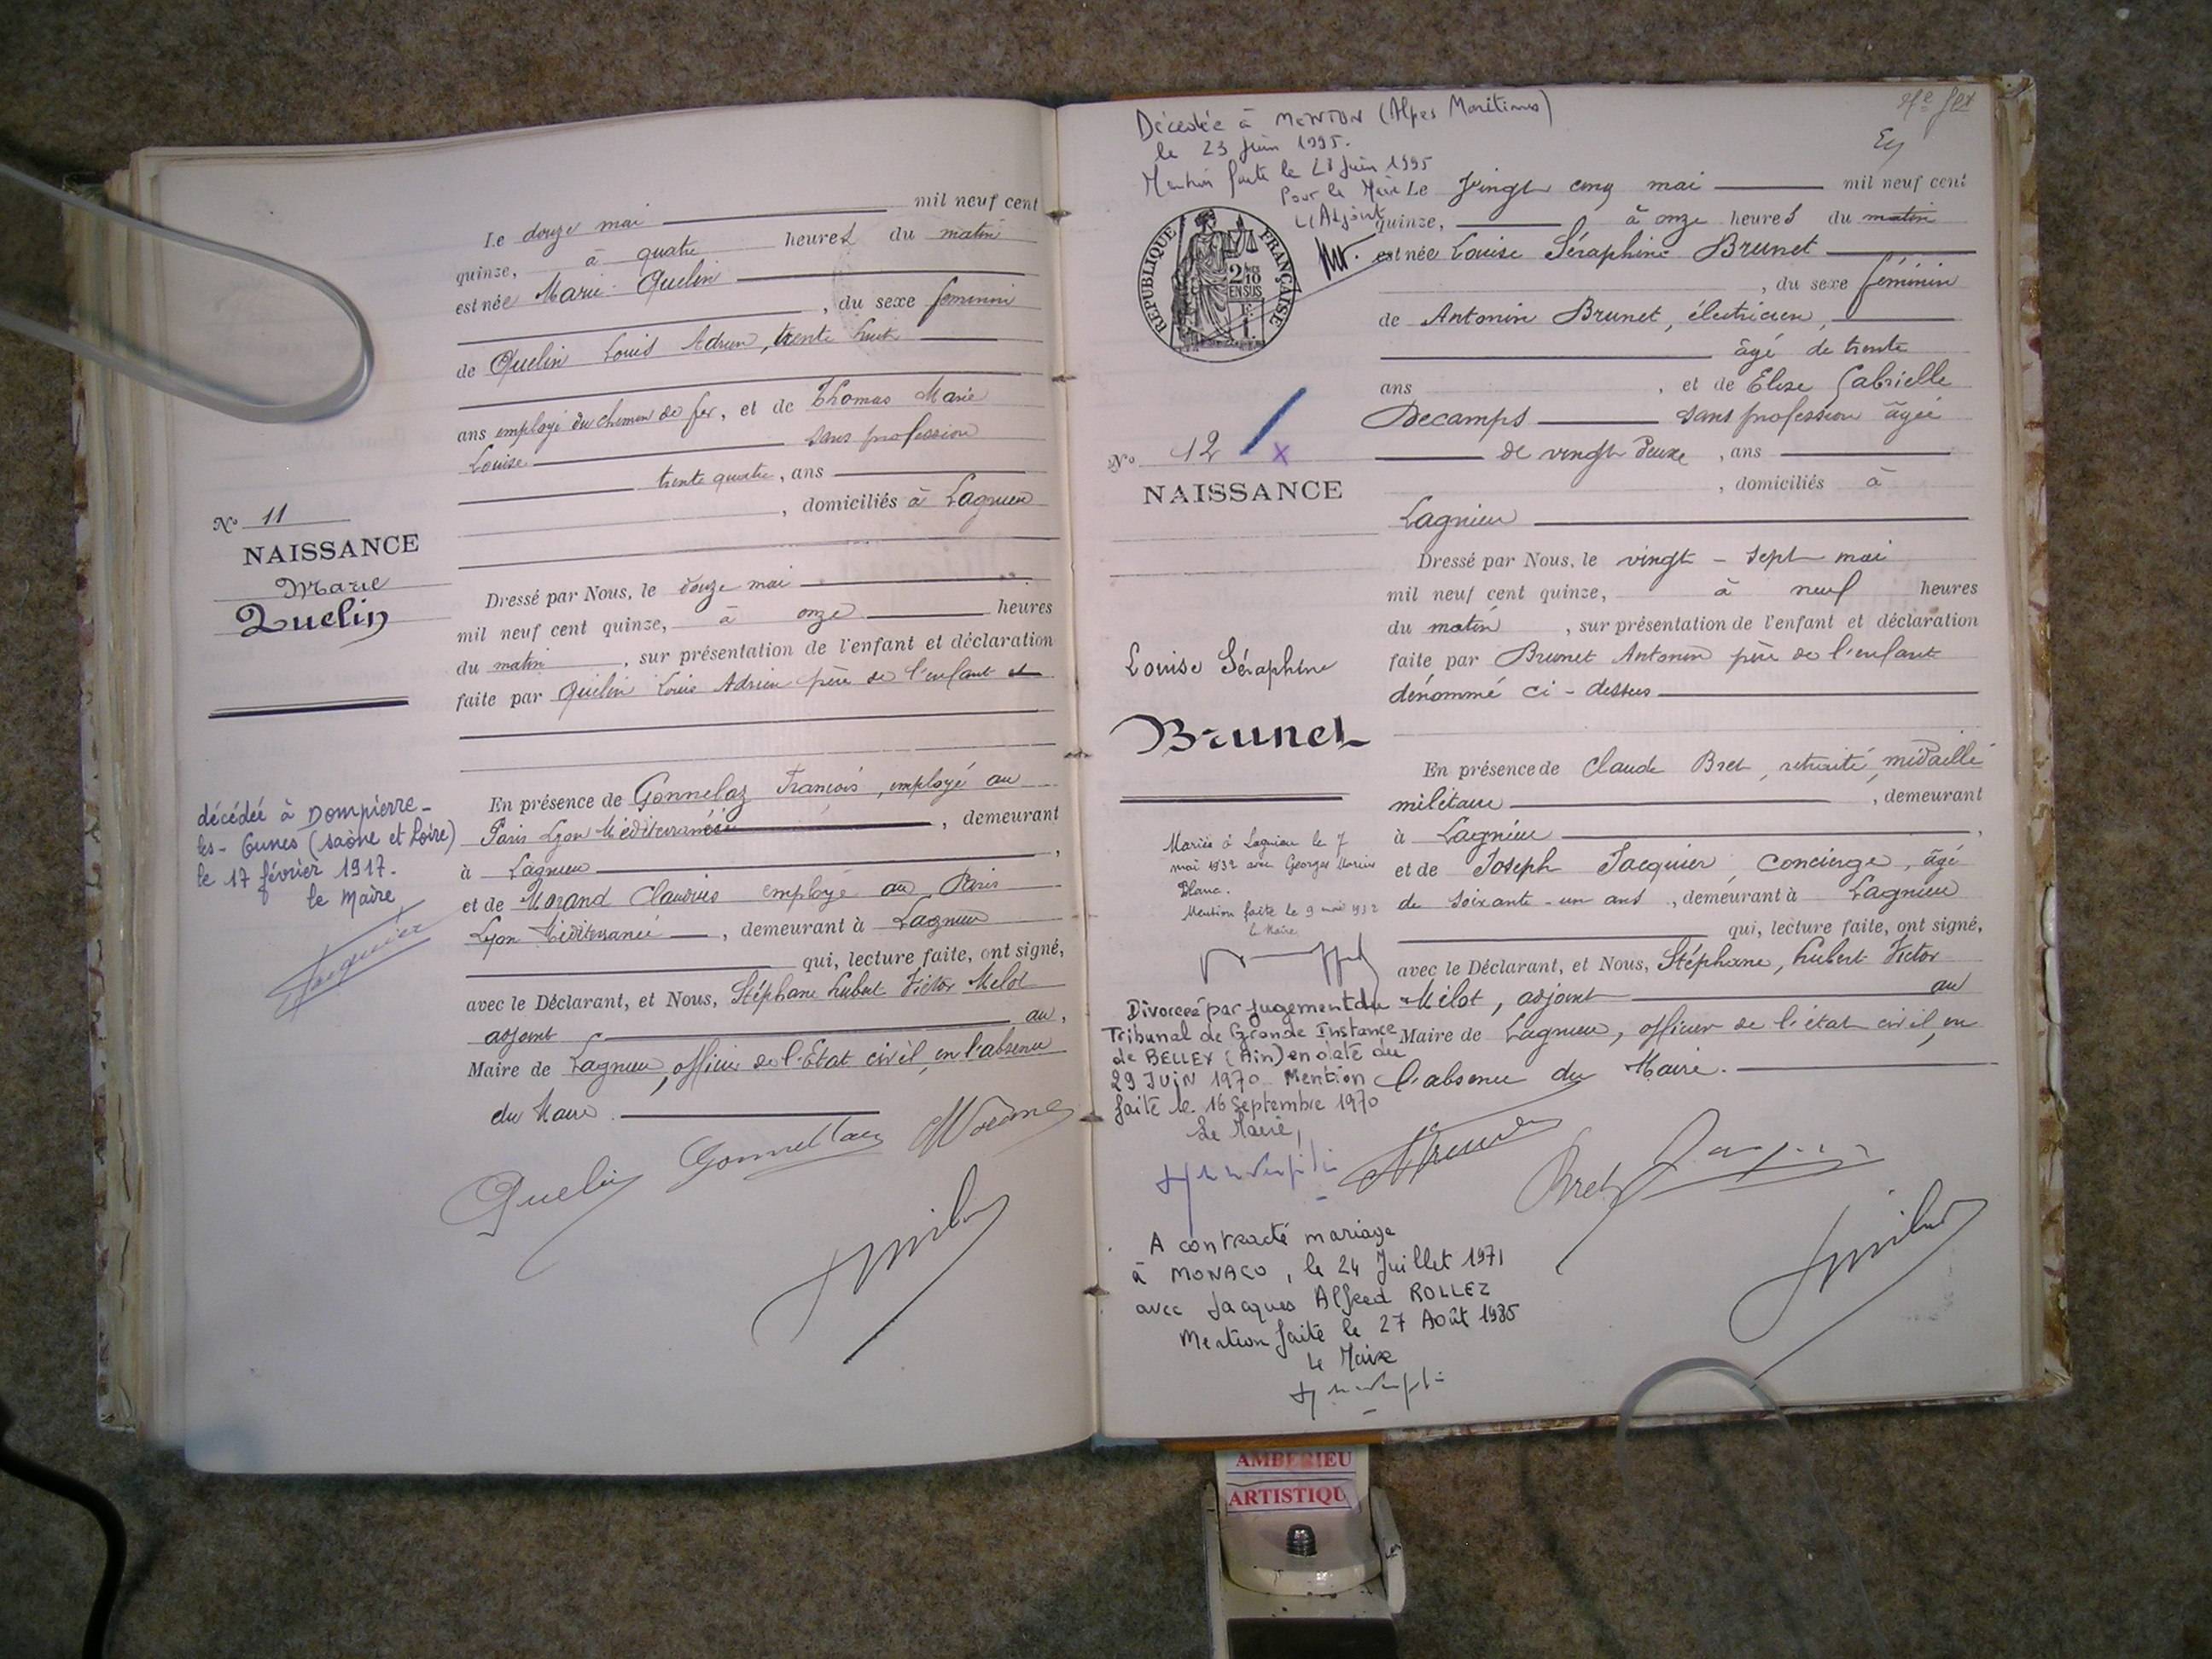 Le douze mai mil neuf cent
quinze, à quatre heures du matin
est née Marie Quelin
, du sexe feminin
de Quelin Louis Adrien, trente huit
ans employé du chemin de fer, et de Thomas Marie
Louise sans profession
trente quatre, ans
, domiciliés à Lagnieu
Dressé par Nous, le douze mai
mil neuf cent quinze, à onze heures
du matin, sur présentation de l'enfant et déclaration
faite par Quelin Louis Adrien père de l'enfant
En présence de Gonnelaz Francois, employé au
Paris Lyon Méditerranée, demeurant
à Lagnieu,
et de Morand Claudius employé au Paris
Lyon Méditerranée, demeurant à Lagnieu
qui, lecture faite, ont signé,
avec le Déclarant, et Nous, Stéphane Hubert Victor Melot
adjoint au,
Maire de Lagnieu, officier de l'Etat civil, en l'absence
du Maire.
Quelin Gonnellaz
N° 11
NAISSANCE
Marie
Quelin
décédée à Dompierre-
les-
(Saône et Loire)
le 17 février 1917.
le Maire
Décédée à MENTON (Alpes Maritimes)
le 23 juin 1995.
Mention faite le 28 juin 1995
Pour le Maire
L'Adjoint
RÉPUBLIQUE FRANÇAISE
2/10
EN SUS
N° 12
NAISSANCE
Louise Séraphine
Brunet
Mariée à Lagnieu le 7
mai 1932 avec Georges Marius
Blanc.
Mention faite le 9 mai 1932
le Maire
Divorcée par jugement du
Tribunal de Grande Instance
de BELLEY (Ain) en date du
29 JUIN 1970 Mention
faite le 16 Septembre 1970
Le Maire,
A contracté mariage
à MONACO, le 24 Juillet 1971
avec Jacques Alfred ROLLEZ
Mention faite le 27 Août 1985
Le Maire
Le vingt cinq mai mil neuf cent
quinze, à onze heures du matin
est née Louise Séraphine Brunet
, du sexe féminin
de Antonin Brunet, électricien,
âgé de trente
ans, et de Elise Gabrielle
Decamps sans profession âgée
de vingt deux, ans
, domiciliés à
Lagnieu
Dressé par Nous, le vingt-sept mai
mil neuf cent quinze, à neuf heures
du matin, sur présentation de l'enfant et déclaration
faite par Brunet Antonin père de l'enfant
dénommé ci-dessus
En présence de Claude Bret, retraité, médaillé
militaire, demeurant
à Lagnieu,
et de Joseph Jacquier, concierge, âgé
de soixante-un ans, demeurant à Lagnieu
qui, lecture faite, ont signé,
avec le Déclarant, et Nous, Stéphane, Hubert Victor
Melot, adjoint au
Maire de Lagnieu, officier de l'état civil, en
l'absence du Maire.
Bret
AMBERIEU
ARTISTIQU